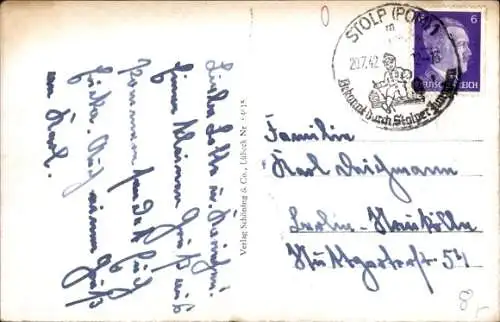 STOLP (POM)
20.7.42
6
DEUTSCHES REICH
Bekannt durch Stolper Jungchen
Liebe Lotte u.
Einen kleinen Gruß aus
Pommern sendet Euch
Auch einen Gruß
an Karl.
Verlag Schöning & Co., Lübeck Nr.
Familie
Karl Deichmann
Berlin-Neukölln
Stuttgarterstr. 54
8,-